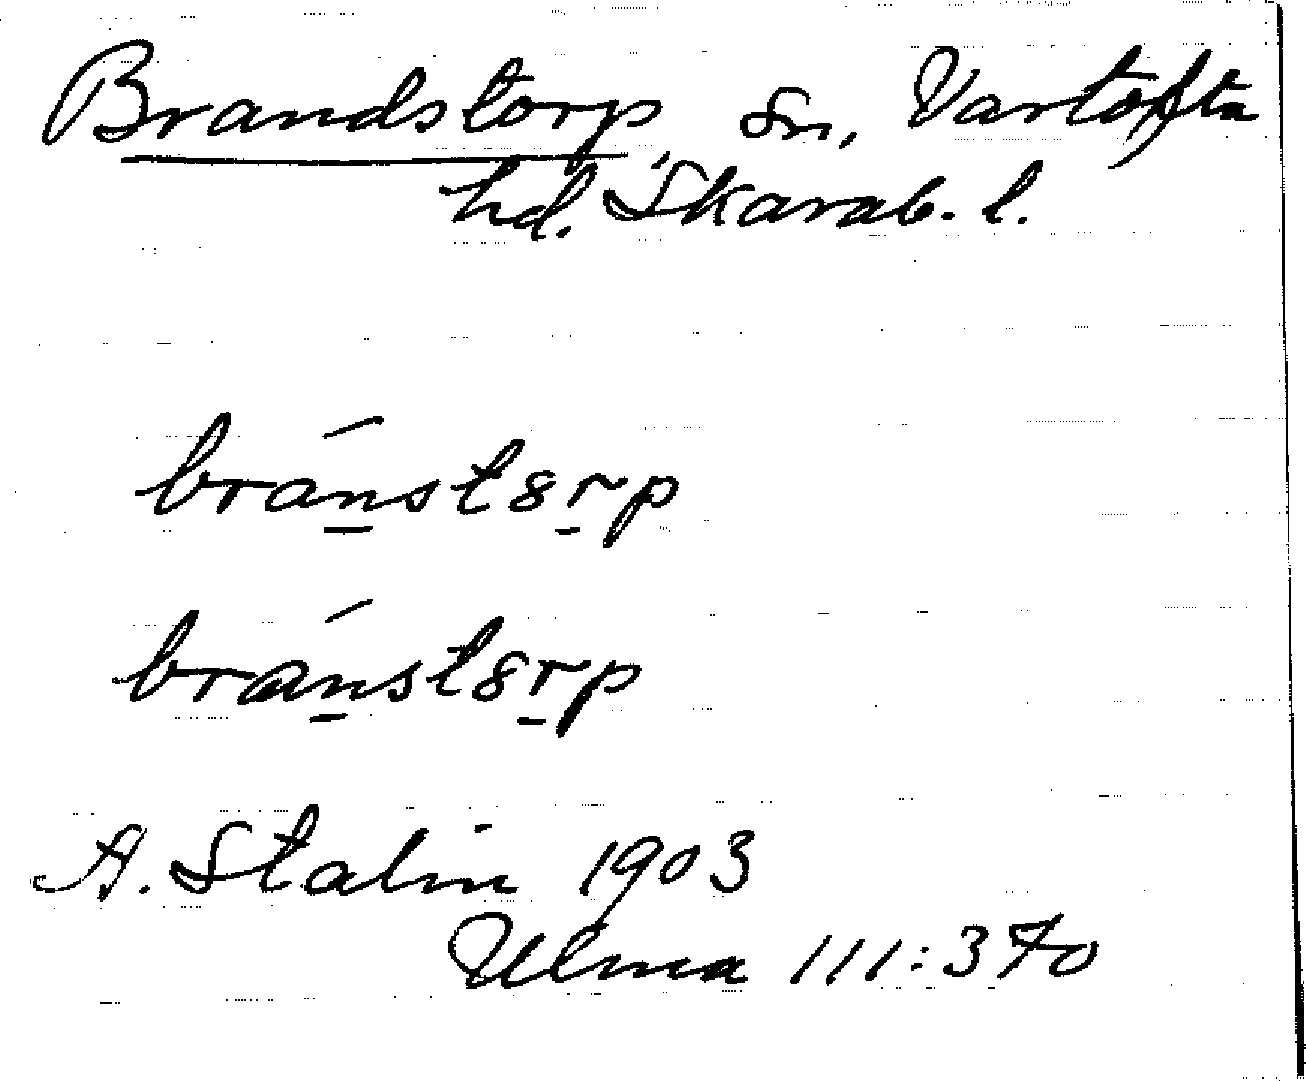 Brandstorp, sn, Vartofta
hd. Skarab. l.
bránst8rp
bránst8rp
A. Stalin 1903
Ulma 111:370